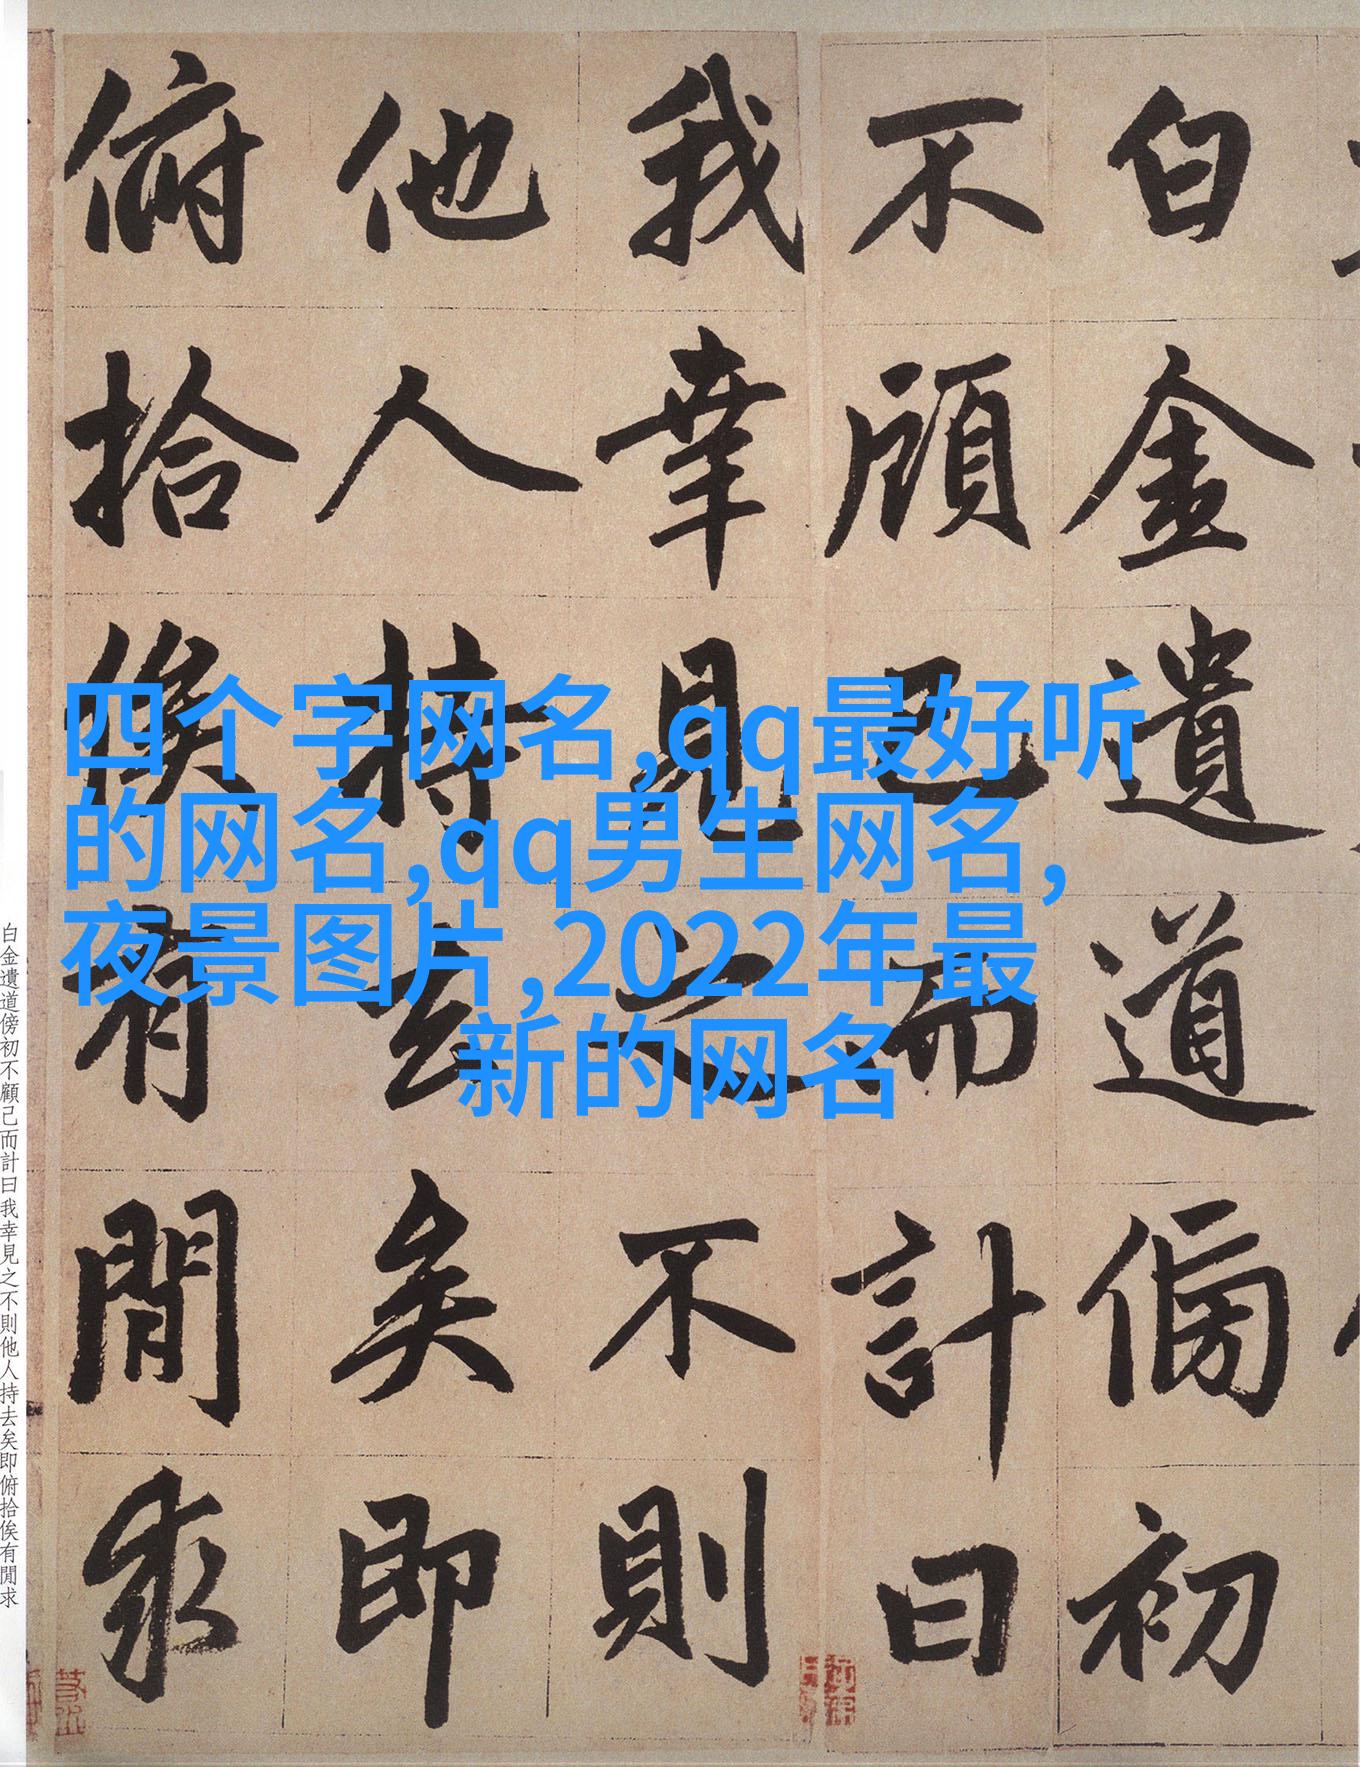 白金遺道傍初
不顧己而計曰
我幸見之不則
他人持去矣即
俯拾俟有閒求
四个字网名,qq最好听
的网名,qq男生网名,
夜景图片,2022年最
新的网名
白金遺道傍初不顧己而計曰我幸見之不則他人持去矣即俯拾俟有閒求